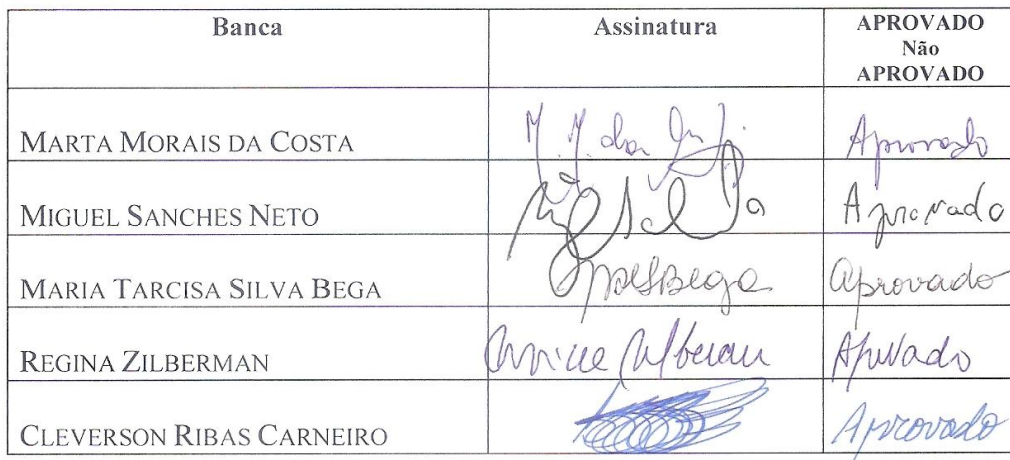 Banca Assinatura APROVADO
Não
APROVADO
MARTA MORAIS DA COSTA M. M. da Aprovado
MIGUEL SANCHES NETO Aprovado
MARIA TARCISA SILVA BEGA Bega aprovado
REGINA ZILBERMAN Aprovado
CLEVERSON RIBAS CARNEIRO Aprovado